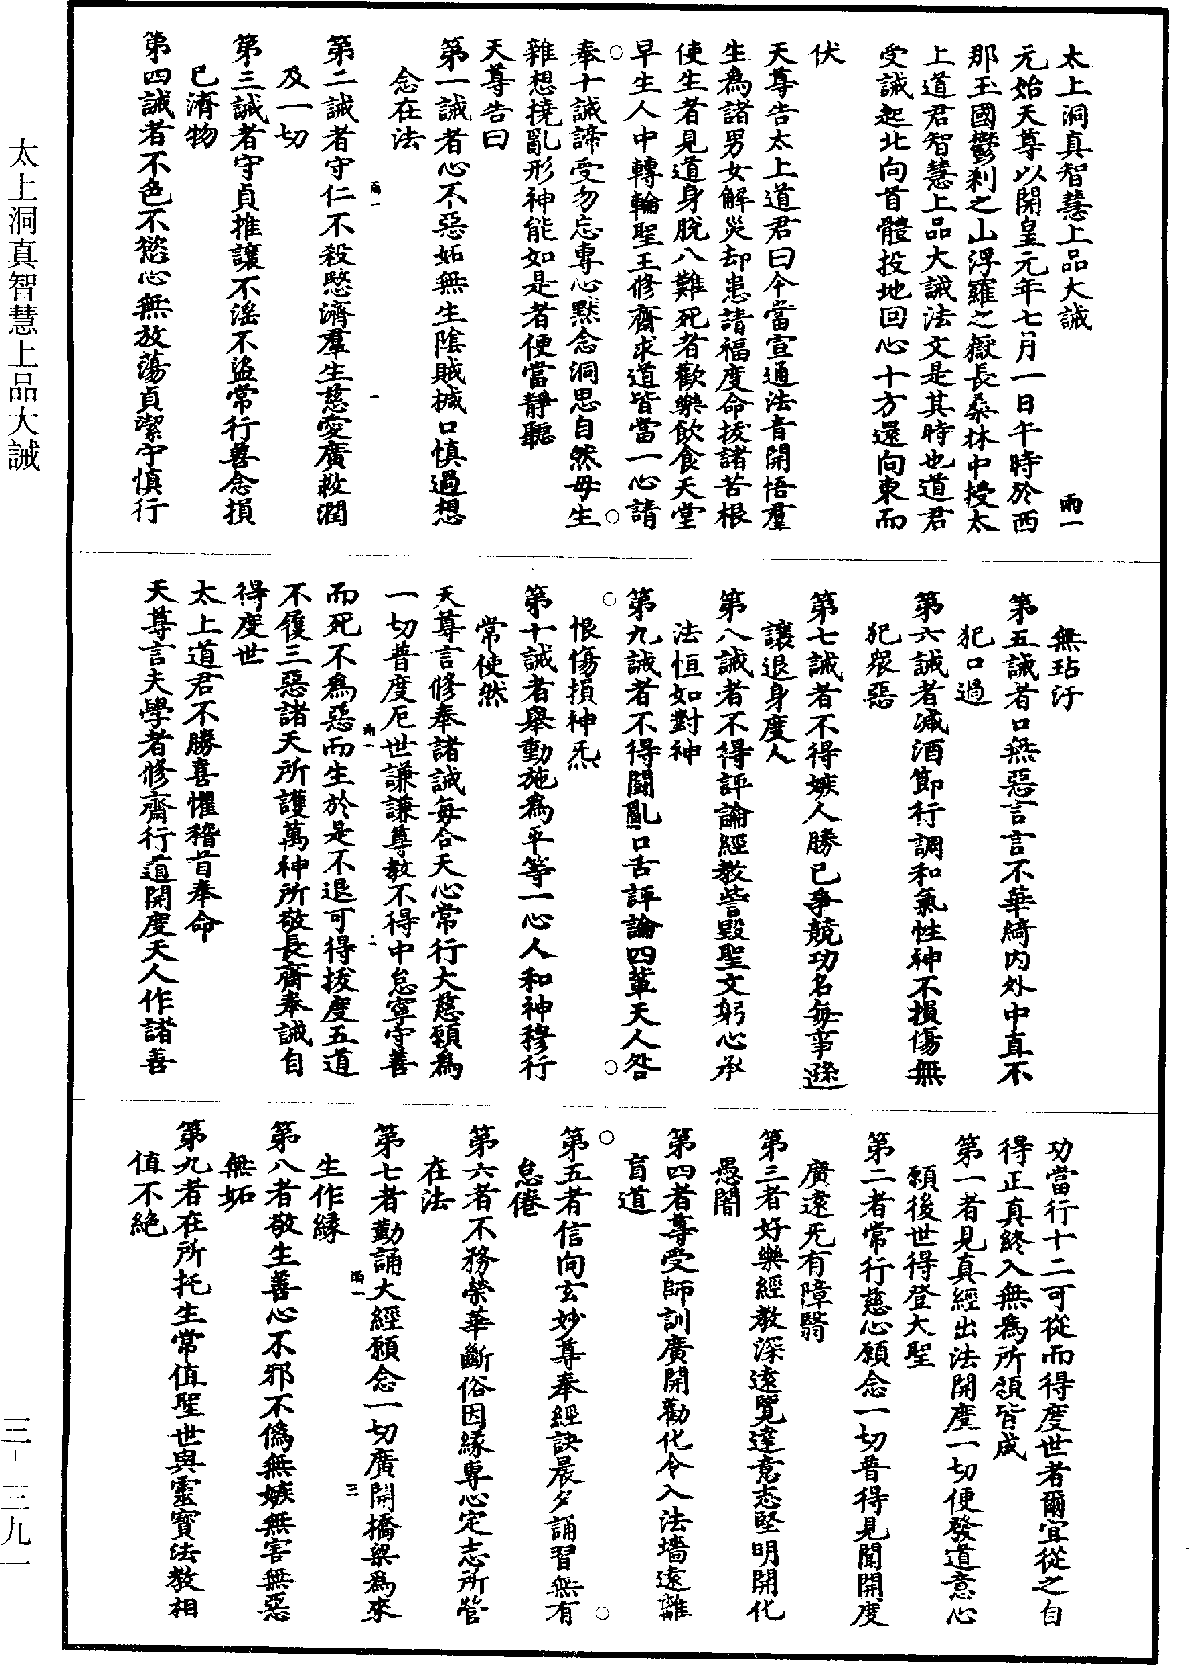 太上洞真智慧上品大誡
雨一
元始天尊以開皇元年七月一日午時於西
那玉國鬱刹之山浮羅之嶽長桑林中授太
上道君智慧上品大誡法文是其時也道君
受誡起北向首體投地回心十方還向東而
伏
天尊告太上道君曰今當宣通法音開悟羣
生為諸男女解災却患請福度命拔諸苦根
使生者見道身脫八難死者歡樂飲食天堂
早生人中轉輪聖王修齋求道皆當一心請
奉十誡諦受勿忘專心默念洞思自然毋生
雜想撓亂形神能如是者便當靜聽
天尊告曰
第一誡者心不惡妬無生陰賊撿口慎過想
念在法
雨一
一
第二誡者守仁不殺愍濟羣生慈愛廣救潤
及一切
第三誡者守貞推讓不淫不盜常行善念損
己濟物
第四誡者不色不慾心無放蕩貞潔守慎行
無玷汙
第五誡者口無惡言言不華綺內外中直不
犯口過
第六誡者減酒節行調和氣性神不損傷無
犯衆惡
第七誡者不得嫉人勝己爭競功名每事遜
讓退身度人
第八誡者不得評論經教訾毀聖文躬心承
法恒如對神
第九誡者不得鬪亂口舌評論四輩天人咎
恨傷損神炁
第十誡者舉動施為平等一心人和神穆行
常使然
天尊言修奉諸誡每合天心常行大慈願為
一切普度厄世謙謙尊教不得中怠寧守善
雨一
二
而死不為惡而生於是不退可得拔度五道
不履三惡諸天所護萬神所敬長齋奉誡自
得度世
太上道君不勝喜懼稽首奉命
天尊言夫學者修齋行道開度天人作諸善
功當行十二可從而得度世者爾宜從之自
得正真終入無為所願皆成
第一者見真經出法開度一切便發道意心
願後世得登大聖
第二者常行慈心願念一切普得見聞開度
廣遠无有障翳
第三者好樂經教深遠覽達意志堅明開化
愚闇
第四者尊受師訓廣開勸化令入法墻遠離
盲道
第五者信向玄妙尊奉經訣晨夕誦習無有
怠倦
第六者不務榮華斷俗因緣專心定志所營
在法
第七者勤誦大經願念一切廣開橋梁為來
雨一
三
生作緣
第八者敬生善心不邪不偽無嫉無害無惡
無妬
第九者在所托生常值聖世與靈寶法教相
值不絕
太上洞真智慧上品大誡
三-三九一